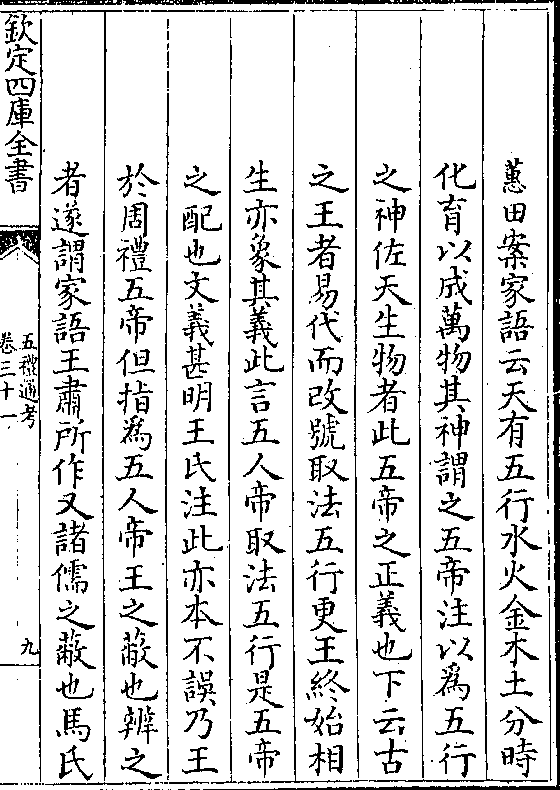 蕙田案家語云天有五行水火金木土分時
化育以成萬物其神謂之五帝注以為五行
之神佐天生物者此五帝之正義也下云古
之王者易代而改號取法五行更王終始相
生亦象其義此言五人帝取法五行是五帝
之配也文義甚明王氏注此亦本不誤乃王
於周禮五帝但指為五人帝王之蔽也辨之
者遂謂家語王肅所作又諸儒之蔽也馬氏
欽定四庫全書
五禮通考
卷三十一
九